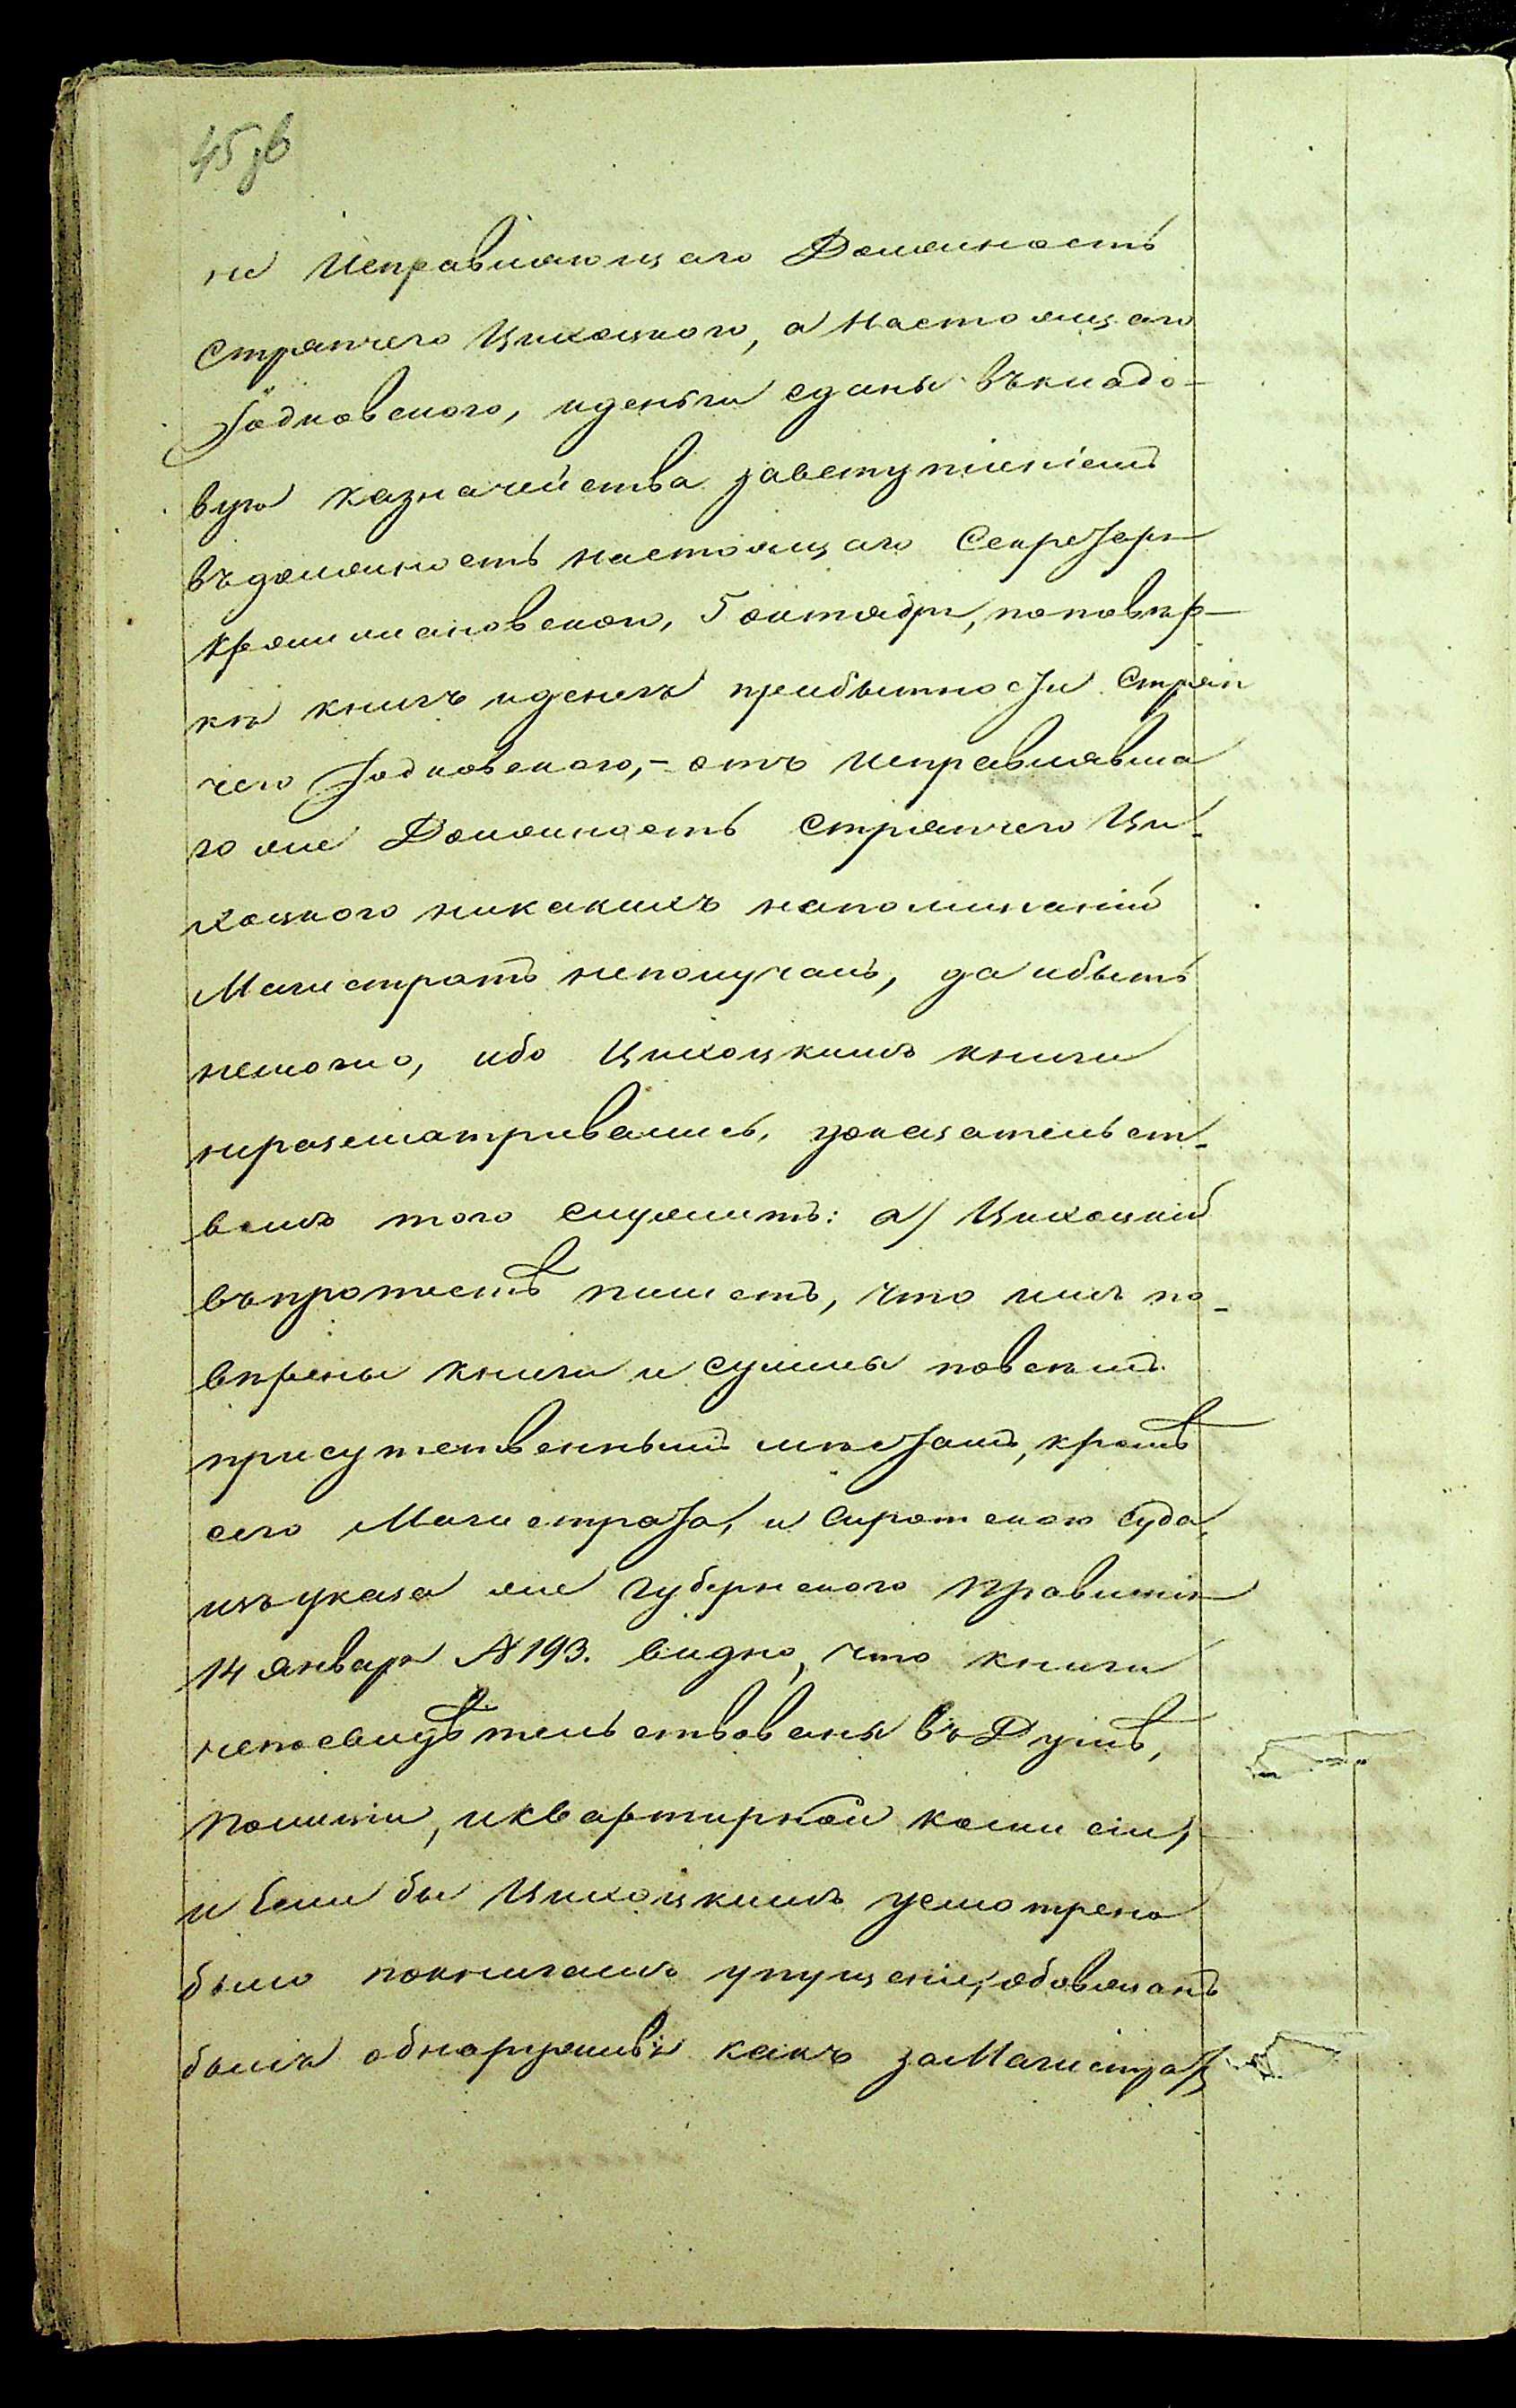 45 зв
не Исправляющаго Должность
Стряпчего Цихоцкого, а Настоящаго
Годковского, иденьги сданы въкладо-
вую казначейства завступленіемъ
въдолжность настоящаго Секретаря
5 октября, поповѣр-
кѣ книгъ иденегъ прибытности Стряп
чего Годковского, - отъ исправлявша
го же Должность Стряпчего Ци-
хоцкого никакихъ напоминаній
Магистратъ неполучалъ, да ибыть
немогло, ибо Цихоцкимъ книги
неразсматривались, доказательст-
вомъ того служитъ: а/ Цихоцкій
въпротестѣ пишетъ, что имъ по-
вѣрены книги и Суммы повсѣмъ
присутственнымъ мѣстамъ, кромѣ
сего Магистрата, и Сиротского Суда,
изъуказа же Губернского Правленія
14 Января № 193. видно, что книги
непосвидѣтельствованы въДумѣ,
Полиціи, иквартирной комисіи,
и Если бы Цихоцкимъ усмотрено
было покнигамъ упущеніе, обовязанъ
былъ обнаружить какъ заМагистрат